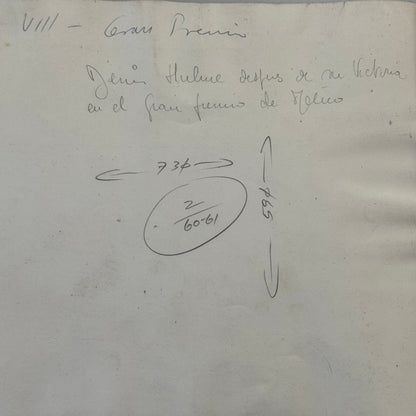 VIII - Gran Premio
Denis Hulme despues de su Victoria
en el gran premio de Mexico
736
2
60-61